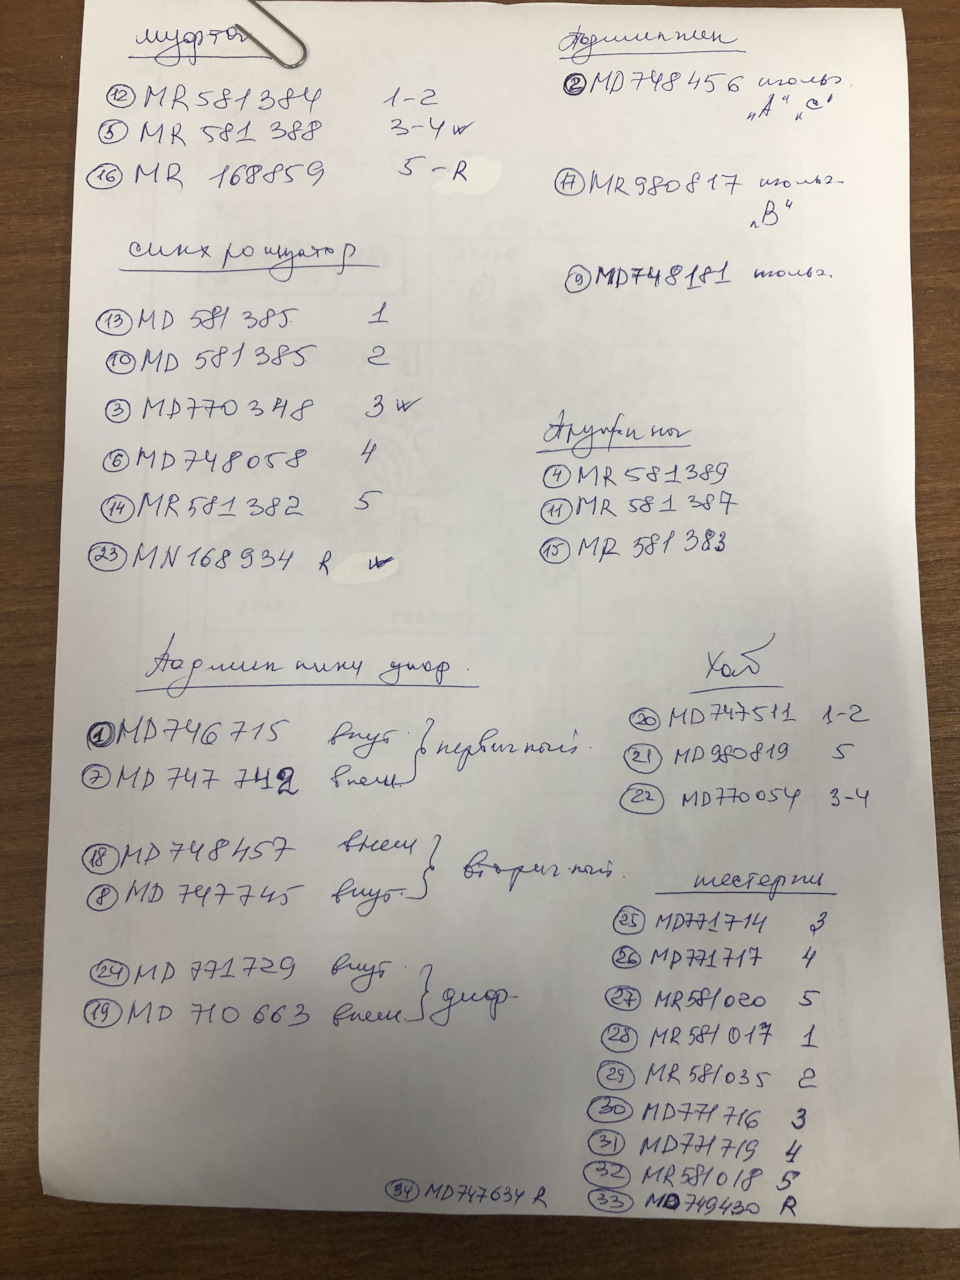 муфта
12 MR581384 1-2
5 MR 581 388 3-4
16 MR 168859 5-R
синхронизатор
13 MD 581 385 1
10 MD 581385 2
3 MD770348 3
6 MD748058 4
14 MR581382 5
23 MN168934 R
Подшипник
2 MD748456 игольч.
"A" "C"
17 MR980817 игольч.
"B"
9 MD748181 игольч.
Пружина
4 MR 581389
11 MR 581 387
15 MR 581383
Подшипники диф.
1 MD746715 внут. } первичный.
7 MD 747 742 внеш.
18 MD 748457 внеш } вторичный.
8 MD 747745 внут.
24 MD 771729 внут. } диф.
19 MD 710 663 внеш.
Хаб
20 MD747511 1-2
21 MD980819 5
22 MD770054 3-4
шестерни
25 MD771714 3
26 MD771717 4
27 MR581020 5
28 MR581017 1
29 MR581035 2
30 MD771716 3
31 MD771719 4
32 MR581018 5
33 MD749430 R
34 MD747634 R